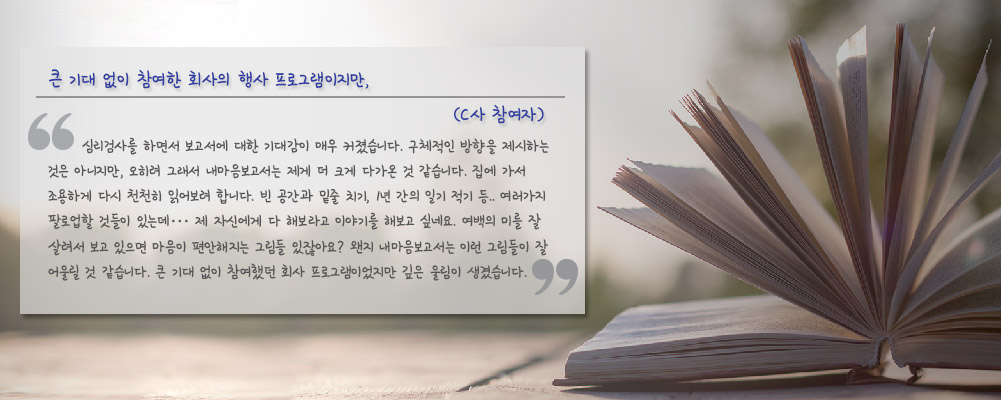 큰 기대 없이 참여한 회사의 행사 프로그램이지만,
(C사 참여자)
“ 심리검사를 하면서 보고서에 대한 기대감이 매우 커졌습니다. 구체적인 방향을 제시하는
것은 아니지만, 오히려 그래서 내마음보고서는 제게 더 크게 다가온 것 같습니다. 집에 가서
조용하게 다시 천천히 읽어보려 합니다. 빈 공간과 밑줄 치기, 1년 간의 일기 적기 등.. 여러가지
팔로업할 것들이 있는데··· 제 자신에게 다 해보라고 이야기를 해보고 싶네요. 여백의 미를 잘
살려서 보고 있으면 마음이 편안해지는 그림들 있잖아요? 왠지 내마음보고서는 이런 그림들이 잘
어울릴 것 같습니다. 큰 기대 없이 참여했던 회사 프로그램이었지만 깊은 울림이 생겼습니다. ”